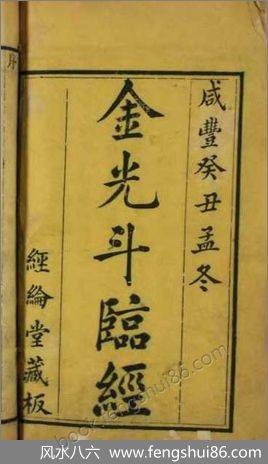 咸豐癸丑孟冬
金光斗臨經
經綸堂藏板
序
book.fengshui86.com
风水八六 www.fengshui86.com